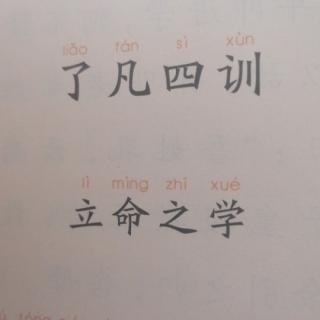 liǎo fán sì xùn
了凡四训
lì mìng zhī xué
立命之学